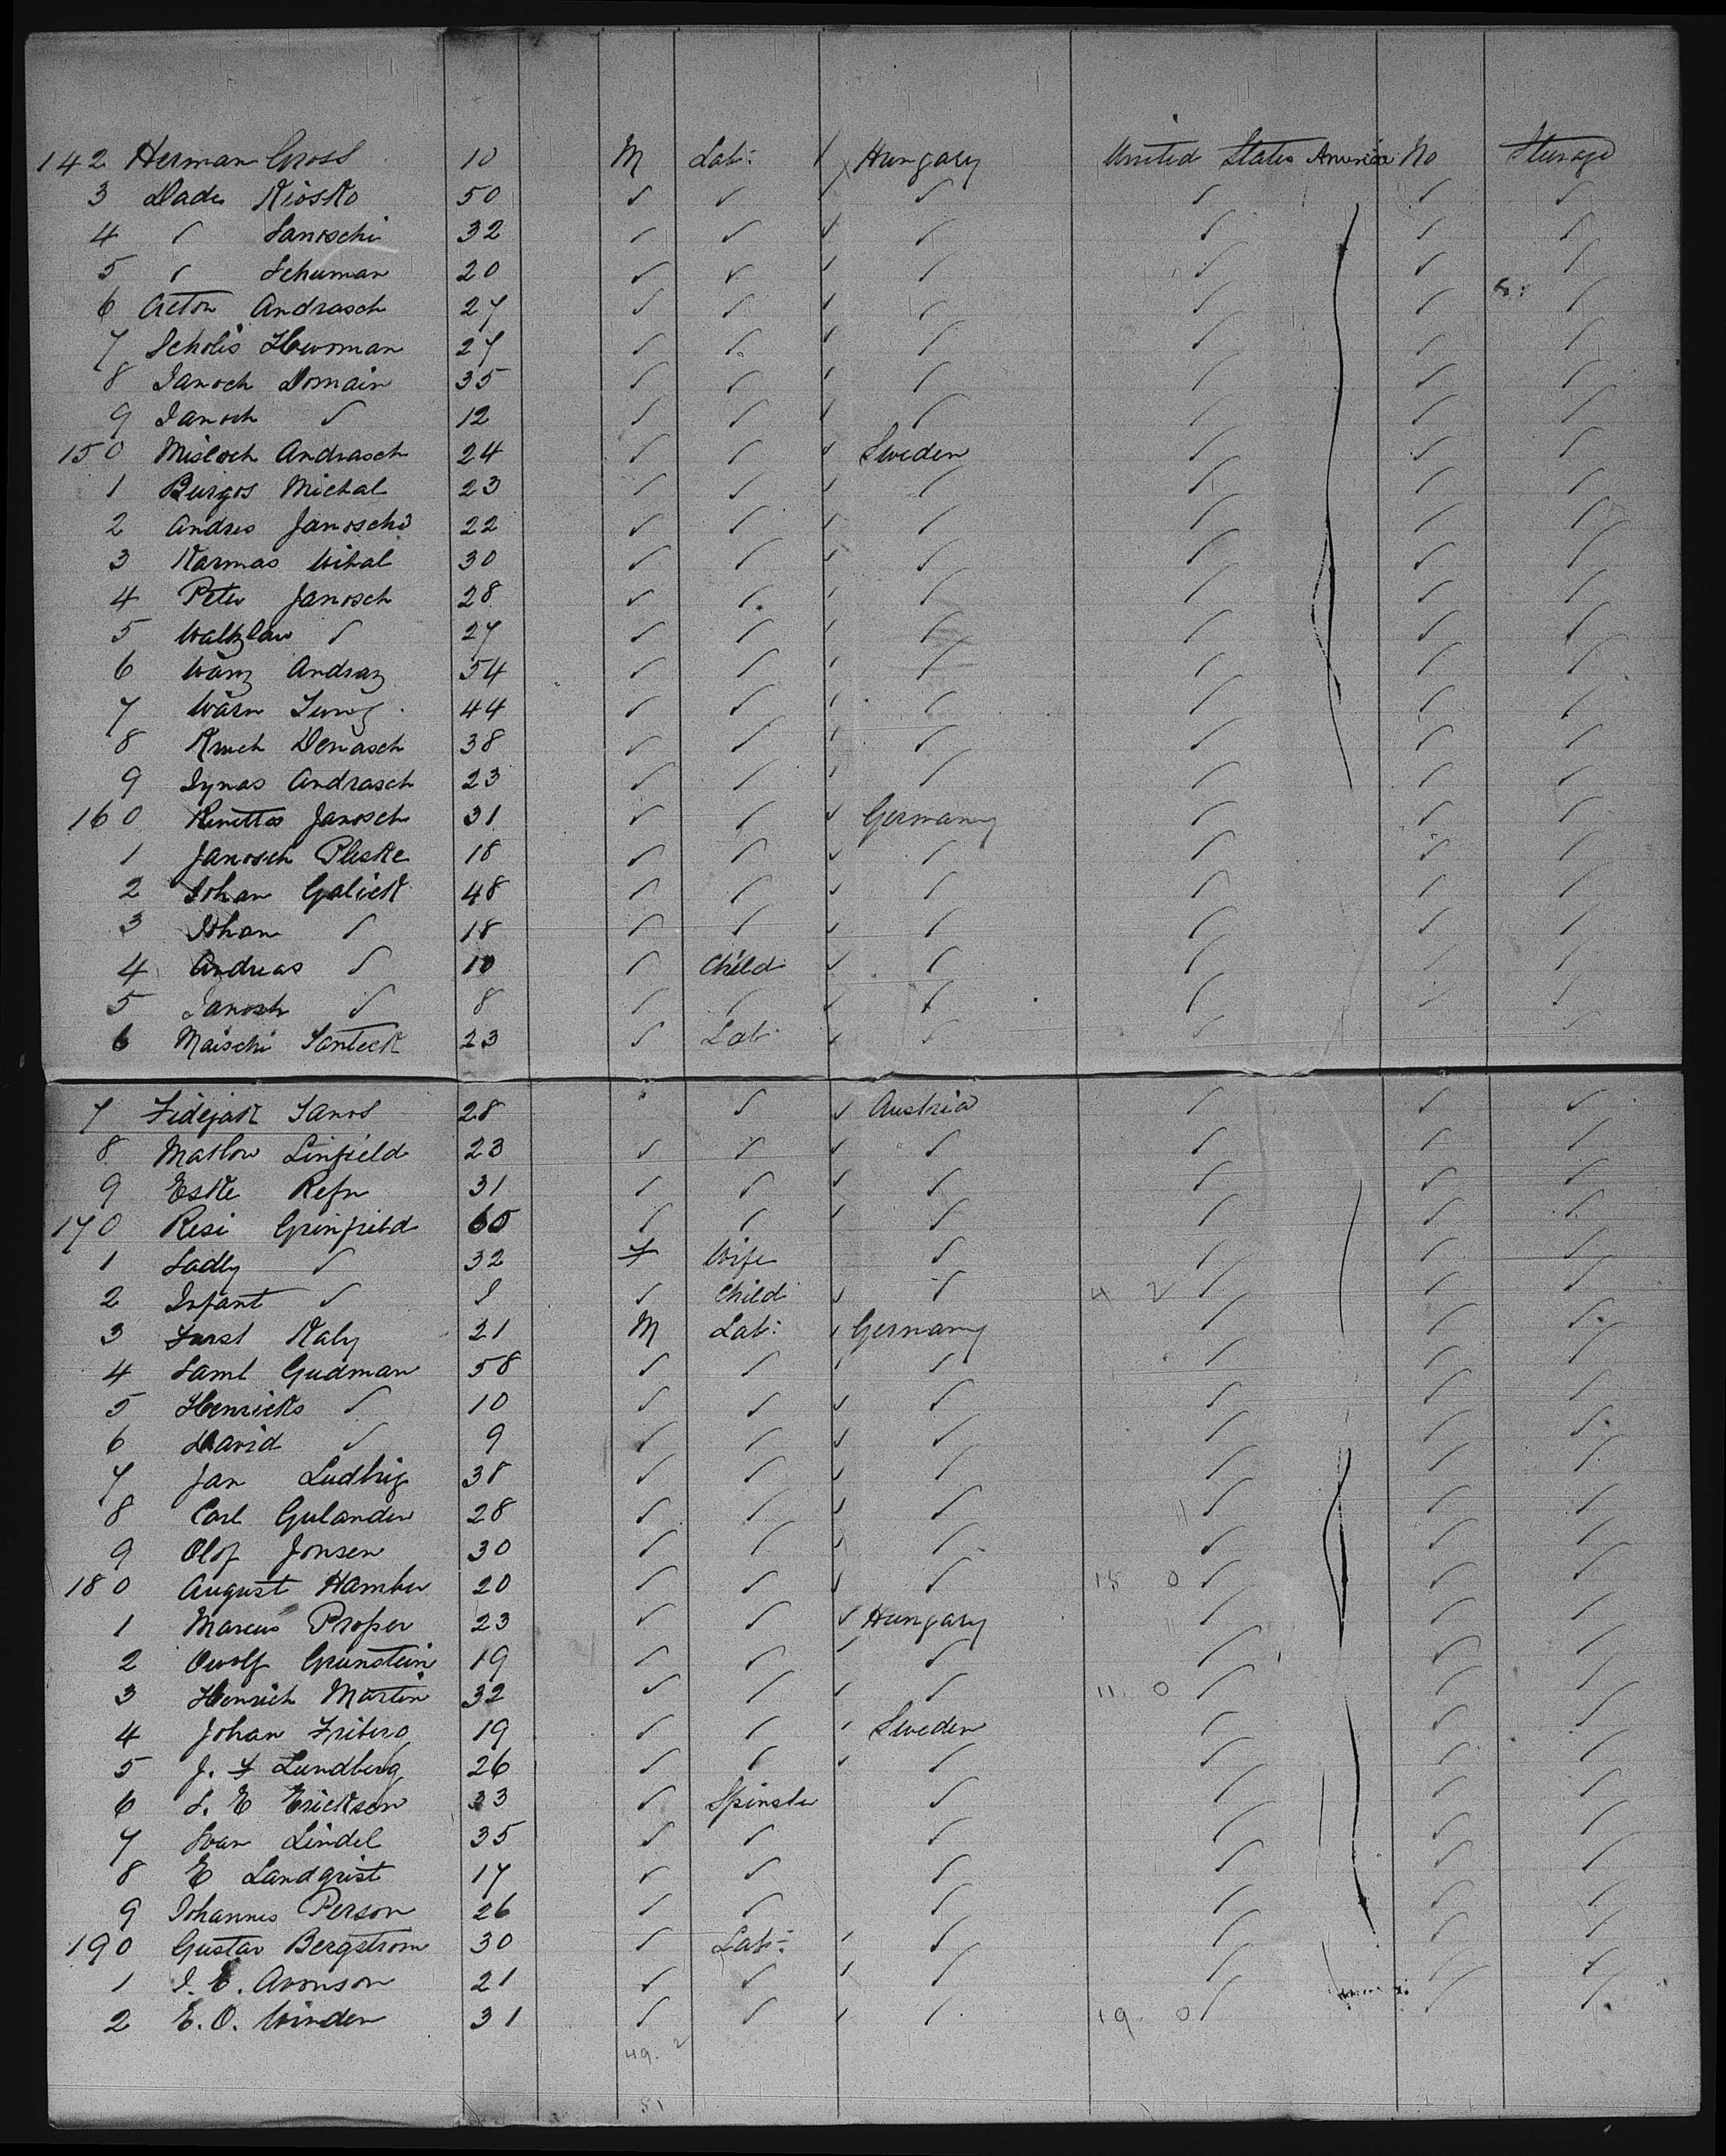 142 Herman Gross 10 M Lab: ✓ Hungary United States America No Steerage
3 Dades Kiosko 50 ✓ ✓ ✓ ✓ ✓ ✓ ✓
4 ✓ Janoschi 32 ✓ ✓ ✓ ✓ ✓ ✓ ✓
5 ✓ Schuman 20 ✓ ✓ ✓ ✓ ✓ ✓ ✓
6 Acton Andrasch 27 ✓ ✓ ✓ ✓ ✓ ✓ ✓
7 Scholis Hewman 27 ✓ ✓ ✓ ✓ ✓ ✓ ✓
8 Janoch Domain 35 ✓ ✓ ✓ ✓ ✓ ✓ ✓
9 Janoch ✓ 12 ✓ ✓ ✓ ✓ ✓ ✓ ✓
150 Misloch Andrasch 24 ✓ ✓ ✓ Sweden ✓ ✓ ✓
1 Burgos Michal 23 ✓ ✓ ✓ ✓ ✓ ✓ ✓
2 Andres Janoschi 22 ✓ ✓ ✓ ✓ ✓ ✓ ✓
3 Karmas Wihal 30 ✓ ✓ ✓ ✓ ✓ ✓ ✓
4 Peter Janosch 28 ✓ ✓ ✓ ✓ ✓ ✓ ✓
5 Waltzlaw ✓ 27 ✓ ✓ ✓ ✓ ✓ ✓ ✓
6 Warz Andraz 54 ✓ ✓ ✓ ✓ ✓ ✓ ✓
7 Warn 44 ✓ ✓ ✓ ✓ ✓ ✓ ✓
8 Kruch Denasch 38 ✓ ✓ ✓ ✓ ✓ ✓ ✓
9 Iynas Andrasch 23 ✓ ✓ ✓ ✓ ✓ ✓ ✓
160 Renettas Janosch 31 ✓ ✓ ✓ Germany ✓ ✓ ✓
1 Janosch Pleske 18 ✓ ✓ ✓ ✓ ✓ ✓ ✓
2 Johan Galick 48 ✓ ✓ ✓ ✓ ✓ ✓ ✓
3 Johan ✓ 18 ✓ ✓ ✓ ✓ ✓ ✓ ✓
4 Andreas ✓ 10 ✓ Child ✓ ✓ ✓ ✓ ✓
5 Janosh ✓ 8 ✓ ✓ ✓ ✓ ✓ ✓ ✓
6 Maischi Janteck 23 ✓ Lab ✓ ✓ ✓ ✓ ✓
7 Fidejak Janos 28 ✓ ✓ ✓ Austria ✓ ✓ ✓
8 Matlow Linfield 23 ✓ ✓ ✓ ✓ ✓ ✓ ✓
9 Eske Refn 31 ✓ ✓ ✓ ✓ ✓ ✓ ✓
170 Resi Grinfield 60 ✓ ✓ ✓ ✓ ✓ ✓ ✓
1 Sadly ✓ 32 F Wife ✓ ✓ ✓ ✓
2 Infant ✓ ✓ Child ✓ ✓ 4 2 ✓ ✓ ✓
3 Furst Kaly 21 M Lab: ✓ Germany ✓ ✓ ✓
4 Saml Gudman 58 ✓ ✓ ✓ ✓ ✓ ✓ ✓
5 Henricks ✓ 10 ✓ ✓ ✓ ✓ ✓ ✓ ✓
6 David ✓ 9 ✓ ✓ ✓ ✓ ✓ ✓ ✓
7 Jan Ludbrig 38 ✓ ✓ ✓ ✓ ✓ ✓ ✓
8 Carl Gulander 28 ✓ ✓ ✓ ✓ ✓ ✓ ✓
9 Olof Jonsen 30 ✓ ✓ ✓ ✓ ✓ ✓ ✓
180 August Hamber 20 ✓ ✓ ✓ ✓ 18 0 ✓ ✓ ✓
1 Marcus Proper 23 ✓ ✓ ✓ Hungary ✓ ✓ ✓
2 Owolf Grunstein 19 ✓ ✓ ✓ ✓ ✓ ✓ ✓
3 Henrich Martin 32 ✓ ✓ ✓ ✓ 11 0 ✓ ✓ ✓
4 Johan Friberg 19 ✓ ✓ ✓ Sweden ✓ ✓ ✓
5 J. F Lundberg 26 ✓ ✓ ✓ ✓ ✓ ✓ ✓
6 S. E Erickson 33 ✓ Spinster ✓ ✓ ✓ ✓
7 Ivan Lindel 35 ✓ ✓ ✓ ✓ ✓ ✓
8 E Landqrist 17 ✓ ✓ ✓ ✓ ✓ ✓
9 Johannes Person 26 ✓ ✓ ✓ ✓ ✓ ✓
190 Gustav Bergstrom 30 ✓ Lab: ✓ ✓ ✓ ✓ ✓
1 I. E. Aronson 21 ✓ ✓ ✓ ✓ ✓ ✓ ✓
2 E. O. Winden 31 ✓ ✓ ✓ ✓ 19 0 ✓ ✓ ✓
49. 2
51